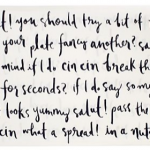 f! you should try a bit of
your plate fancy another? sa
mind if I do cin cin break th
for seconds? if I do say som
looks yummy salut! pass the
cin what a spread! in a nut